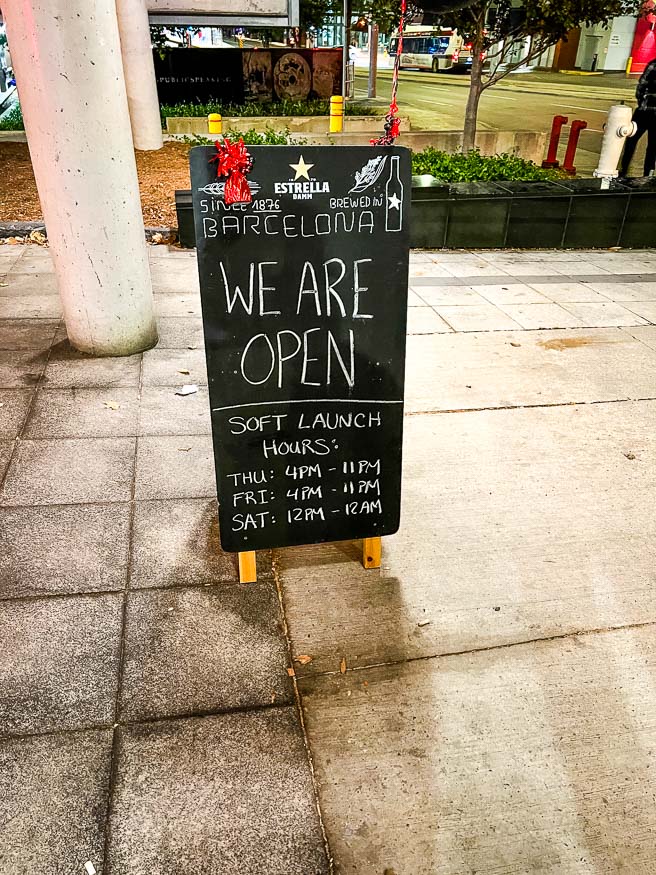 PUBLIC SPEAKING
ESTRELLA
DAMM
SINCE 1876 BREWED IN
BARCELONA
WE ARE
OPEN
SOFT LAUNCH
HOURS:
THU: 4PM - 11PM
FRI: 4PM - 11PM
SAT: 12PM - 12AM